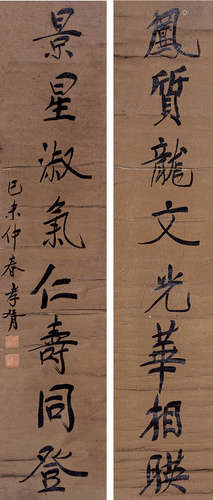 鳳質龍文光華相暎
景星淑氣仁壽同登
己未仲春孝胥